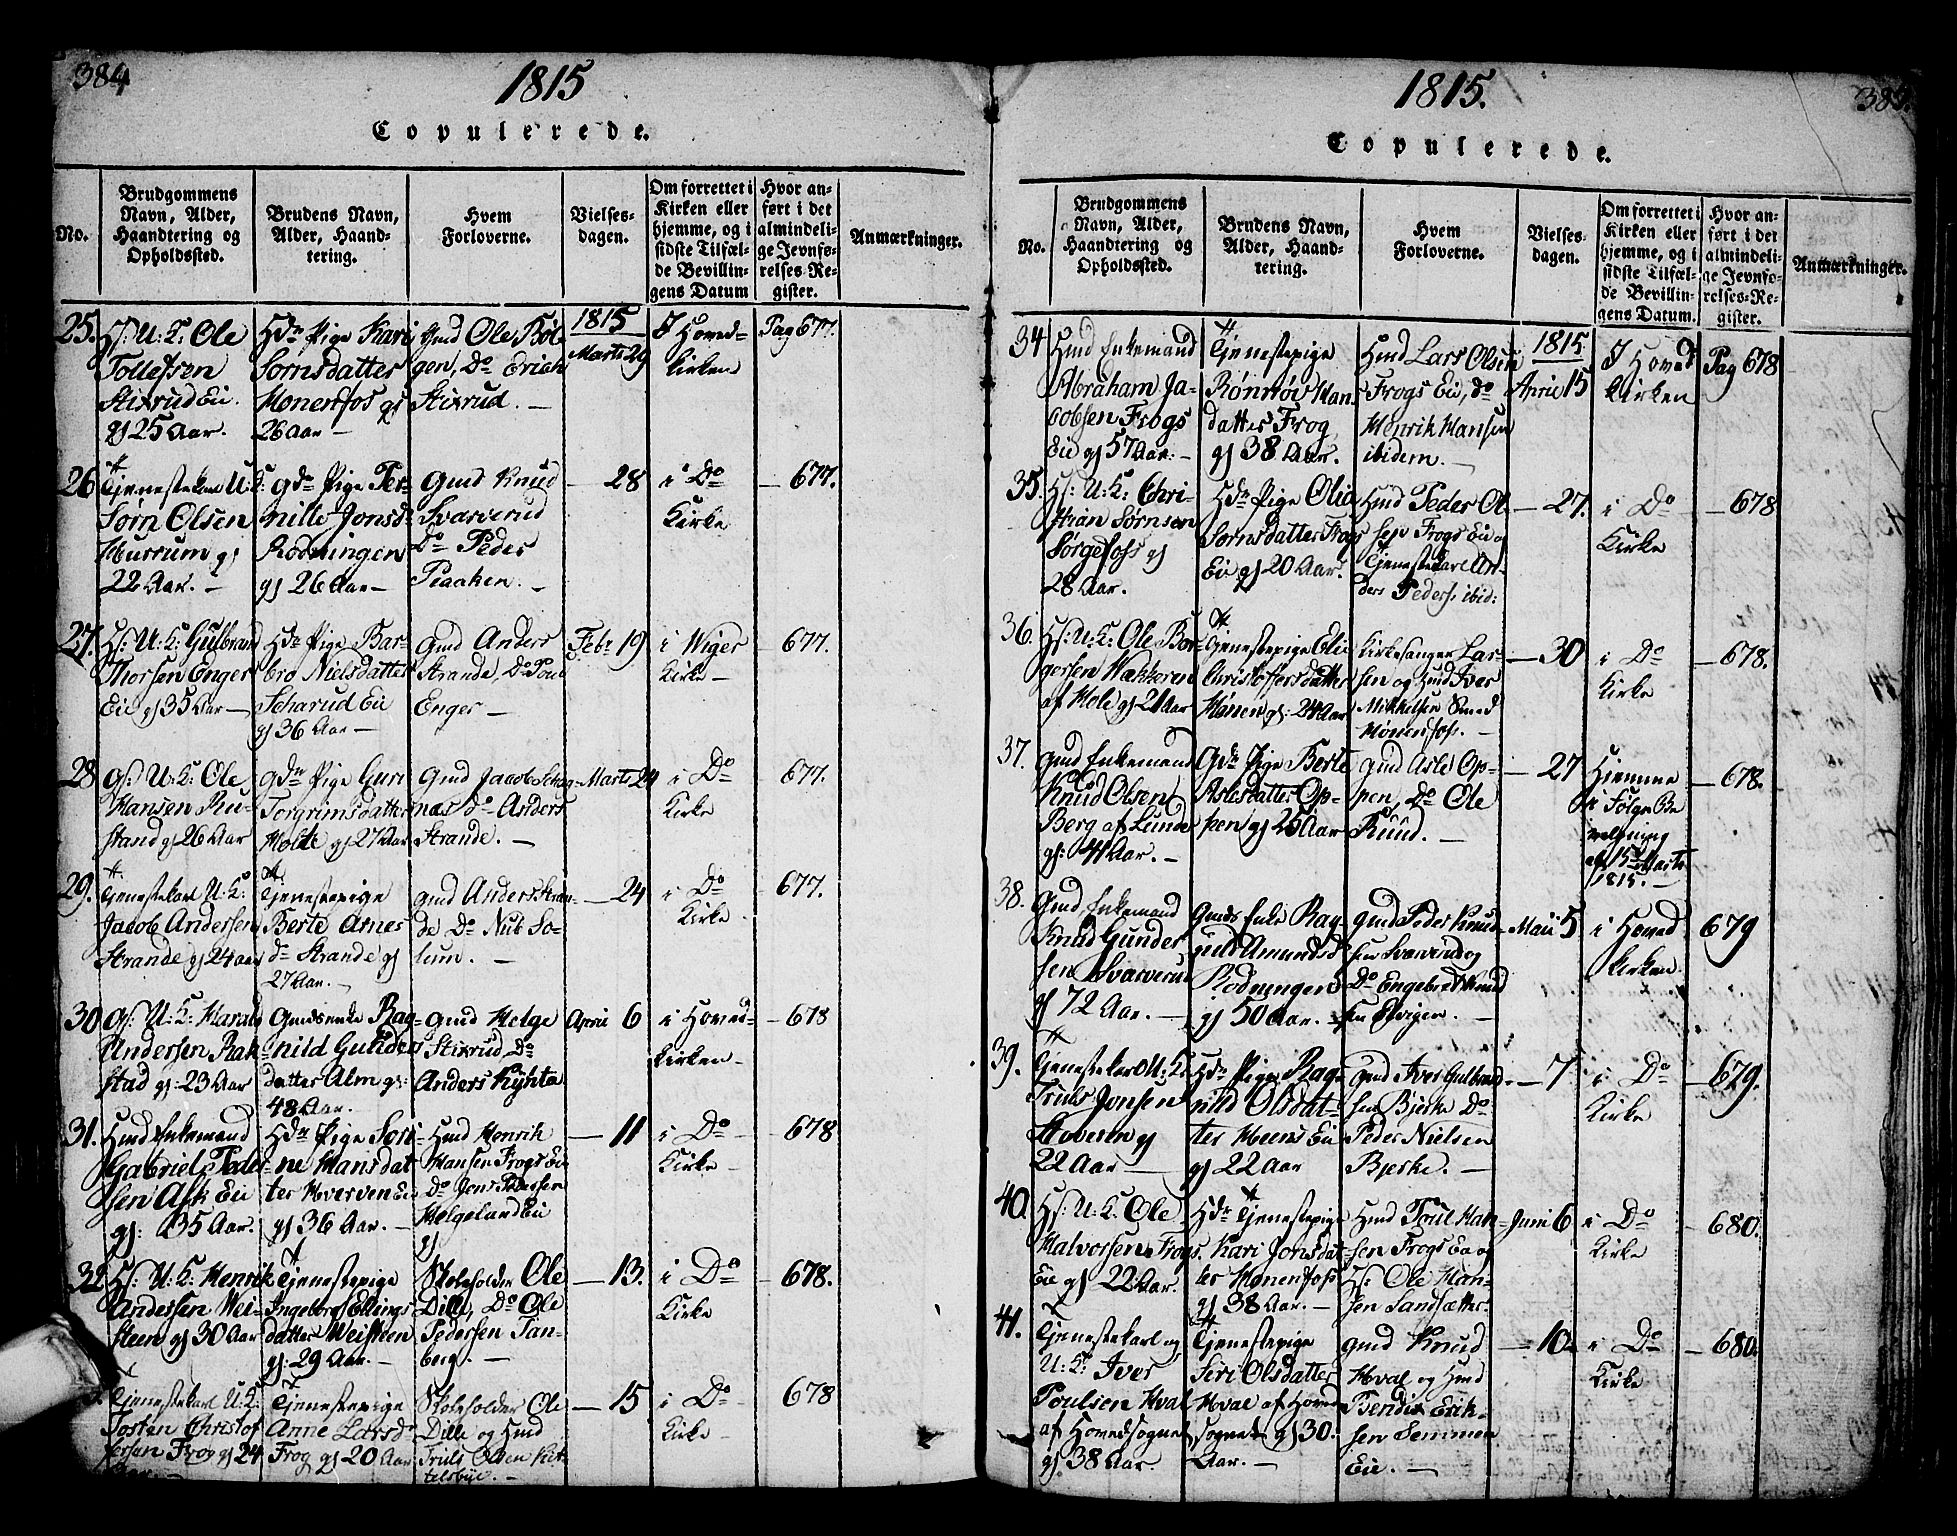 384
1815
Copulerede.
No.
Brudgommens Navn, Alder, Haandtering og Opholdssted.
Brudens Navn, Alder, Haandtering.
Hvem Forloverne.
Vielsesdagen.
Om forrettet i Kirken eller hjemme, og i sidste Tilfælde Bevillingens Datum
Hvor anført i det almindelige Jevnførelses-Register.
Anmærkninger.
25.
Hs: U: K: Ole
Tollefsen
Stixrud Eie.
gs 25 Aar.
Hdr Pige Kari
Sørnsdatter
Hønenfos gs
26 Aar —
Gmd Ole Bøl
gen, Do Erich
Stixrud. —
1815
Marti 29
I Hoved-
kirken
Pag 677.
26
Tjenestekarl U: K:
Sørn Olsen
Hurrum gs
22 Aar. —
gdr Pige Per-
nille Jonsd:
Rodningen
gs 26 Aar —
Gmd Knud
Svarverud
Do Peder
Plaaken. —
— 28
i Do
Kirke
— 677.
27.
Hs: U: K: Gulbrand
Thorsen Enger
Eie gs 35 Aar —
Hdr Pige Bar-
bro Nielsdatter
Scharud Eie
gs 36 Aar —
Gmd Anders
Strande, Do Poul
Enger —
Febr 19
i Wiger
Kirke —
677.
28
Gs: U: K: Ole
Hansen Ru-
stand gs 26 Aar
gdr Pige Guri
Torgrimsdatter
Holte gs 27 Aar
Gmd Jacob Schag-
nas do Anders
Strande. —
Marti 24
i Do
Kirke
677.
29.
Tjenestekarl U: K:
Jacob Andersen
Strande gs 24 aar
Tjenestepige
Berte Arnes
dr Strande gs
27 Aar. —
Gmd Anders Stran-
de Do Nub So-
lum. —
— 24
i Do
Kirke
— 677.
30
Gs: U: K: Harald
Andersen Rak-
stad gs: 23 Aar
Gmdsenke Rag-
nild Gunders
datter Alm gs:
48 Aar.
Gmd Helge
Stixrud, Do
Anders Kihle
April 6
i Hoved-
kirken —
— 678
31.
Hmd Enkemand
Gabriel Peder
sen Ask Eie
gs: 35 Aar.
Hdr Pige Søri-
ne Hansdat
ter Hverven Eie
gs 36 Aar. —
Hmd Henrik
Hansen Frogs Eie
Do Jens Pedersen
Helgeland Eie
— 11
i Do
Kirke —
678
32
Hs: U: K: Henrik
Andersen Wei-
steen gs 30 Aar
Tjenestepige
Ingeborg Ellings
datter Weisteen
gs: 29 Aar. —
Skoleholder Ole
Dille, Do Ole
Pedersen Tan-
berg. —
— 13.
i Do
Kirke
— 678.
Tjenestekarl U: K:
Josten Christof
fersen Frog gs 24
Aar. —
Tjenestepige
Anne Larsdr
Frog gs 20 Aar
Skoleholder Ole
Dille og Hmd
Truls Olsen Kit-
telsbye. —
— 15
i Do
Kirke
678
1815.
Copulerede.
No.
Brudgommens Navn, Alder, Haandtering og Opholdssted.
Brudens Navn, Alder, Haandtering.
Hvem Forloverne.
Vielsesdagen.
Om forrettet i Kirken eller hjemme, og i sidste Tilfælde Bevillingens Datum.
Hvor anført i det almindelige Jevnførelses-Register.
Anmærkninger.
34
Hmd Enkemand
Abraham Ja-
cobsen Frogs
Eie gs 57 Aar. —
Tjenestepige
Rønnøv Han
datter Frog
gs 38 Aar.
Hmd Lars Olsen
Frogs Eie, do
Henrik Hansen
ibidem. —
1815
April 15
I Hoved
kirken
Pag 678
35.
Hs: U: K: Chri-
stian Sørnsen
Sørgefoss gs
28 Aar.
Hdr Pige Olia
Sørnsdatter Frogs
Eie gs 20 Aar.
Hmd Peder Ol
sen Frogs Eie og
Tjenestekarl An-
ders Peders: ibid:
— 27.
i Do
Kirke
— 678
36.
Hs: U: K: Ole Bor-
gersen Wakkeren
af Hole gs 21 Aar
Tjenestepige Eli
Christoffersdatter
Hønen gs: 24 Aar
Kirkesanger Lar-
sen og Hmd Iver
Mikkelsen Smed
Hønenfoss. —
— 30
i Do
Kirke
— 678.
37.
Gmd Enkemand
Knud Olsen
Berg af Lunde
gs: 41 Aar. —
Gdr Pige Berte
Aslesdatter Op-
pen gs 25 Aar
Gmd Asle Op-
pen, Do Ole
Ruud. —
— 27
Hjemme
i Følge Be
vilgning
af 15de Marts
1815. —
— 678.
38.
Gmd Enkemand
Knud Gunder
sen Svarverud
gs 72 Aar. —
Gmds Enke Rag-
nild Amundsd
Rodningen
gs 50 Aar. —
Gmd Peder Knud-
sen Svarverud og
Do Engebret Knud
sen Elvigen. —
Maii 5
i Hoved
kirken.
679
39.
Tjenestekarl U: K:
Truls Jonsen
Hoveren gs
22 Aar —
Hdr Pige Rag-
nild Olsdat-
ter Heens Eie
gs 22 Aar
Gmd Iver Gulbrand-
sen Bjerke Do
Peder Nielsen
Bjerke. —
— 7.
i Do
Kirke
— 679.
40.
Hs: U: K: Ole
Halvorsen Frogs
Eie gs 22 Aar.
Hdr Tjenestepige
Kari Jonsdat-
ter Hønenfoss
gs 38 Aar. —
Hmd Poul Han-
sen Frogs Eie og
Hs: Ole Han-
sen Sandsætter.
Juni 6
i Do
Kirke
— 680.
41.
Tjenestekarl og
U: K: Iver
Poulsen Hval
af Hovedsognet
gs 38 Aar
Tjenestepige
Siri Olsdatter
Hval af Hoved
sognet gs 30.
Aar. —
Gmd Knud
Hval og Hmd
Bendix Erik-
sen Semmen
Eie. —
— 10.
i Do
Kirke
— 680.